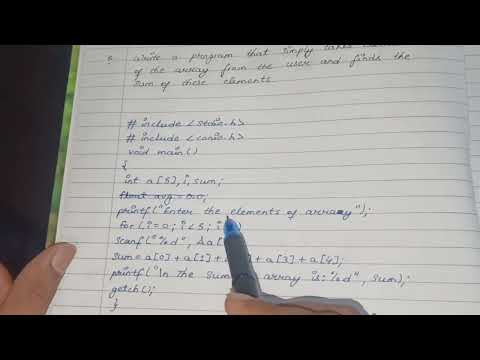 5. Write a program that simply takes
of the array from the user and finds the
sum of these elements
# include <stdio.h>
# include <conio.h>
void main()
{
int a[5], i, sum;
float avg = 0.0;
printf("Enter the elements of array");
for (i=0; i<5; i
scanf("%d", &a[
sum = a[0] + a[1] + + a[3] + a[4];
printf("\n the sum array is: %d", sum);
getch();
}